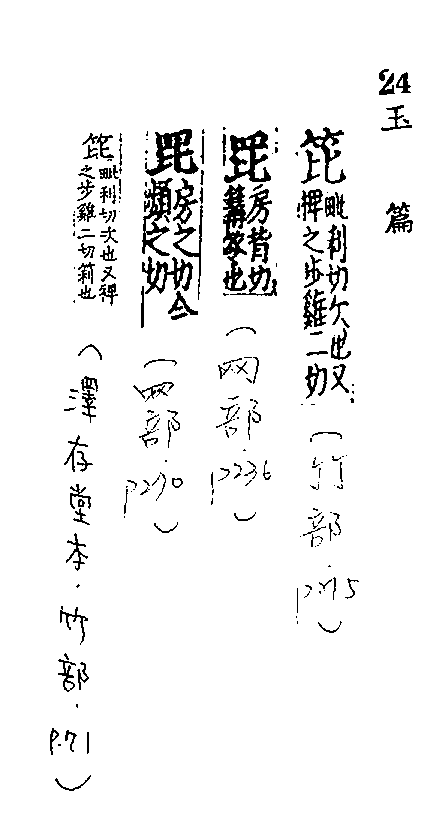 24
玉篇
笓 毗利切次也又
稗之步雞二切
(竹部.p215)
房皆切
(网部.p236)
房之切今
頻之切
(四部.p290)
笓 毗利切次也又稗
之步雞二切莉也
(澤存堂本.竹部.p.71)